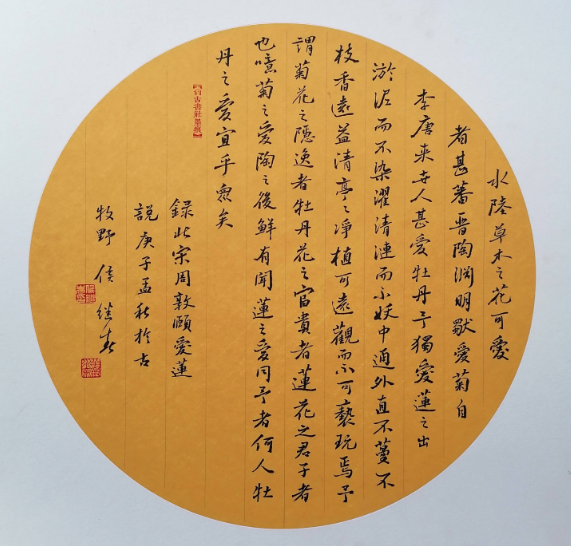 水陸草木之花可愛
者甚蕃晉陶淵明獨愛菊自
李唐來世人甚愛牡丹予獨愛蓮之出
淤泥而不染濯清漣而不妖中通外直不蔓不
枝香遠益清亭亭淨植可遠觀而不可褻玩焉予
謂菊花之隱逸者牡丹花之富貴者蓮花之君子者
也噫菊之愛陶之後鮮有聞蓮之愛同予者何人牡
丹之愛宜乎眾矣
錄此宋周敦頤愛蓮
說庚子孟秋於古
牧野侯